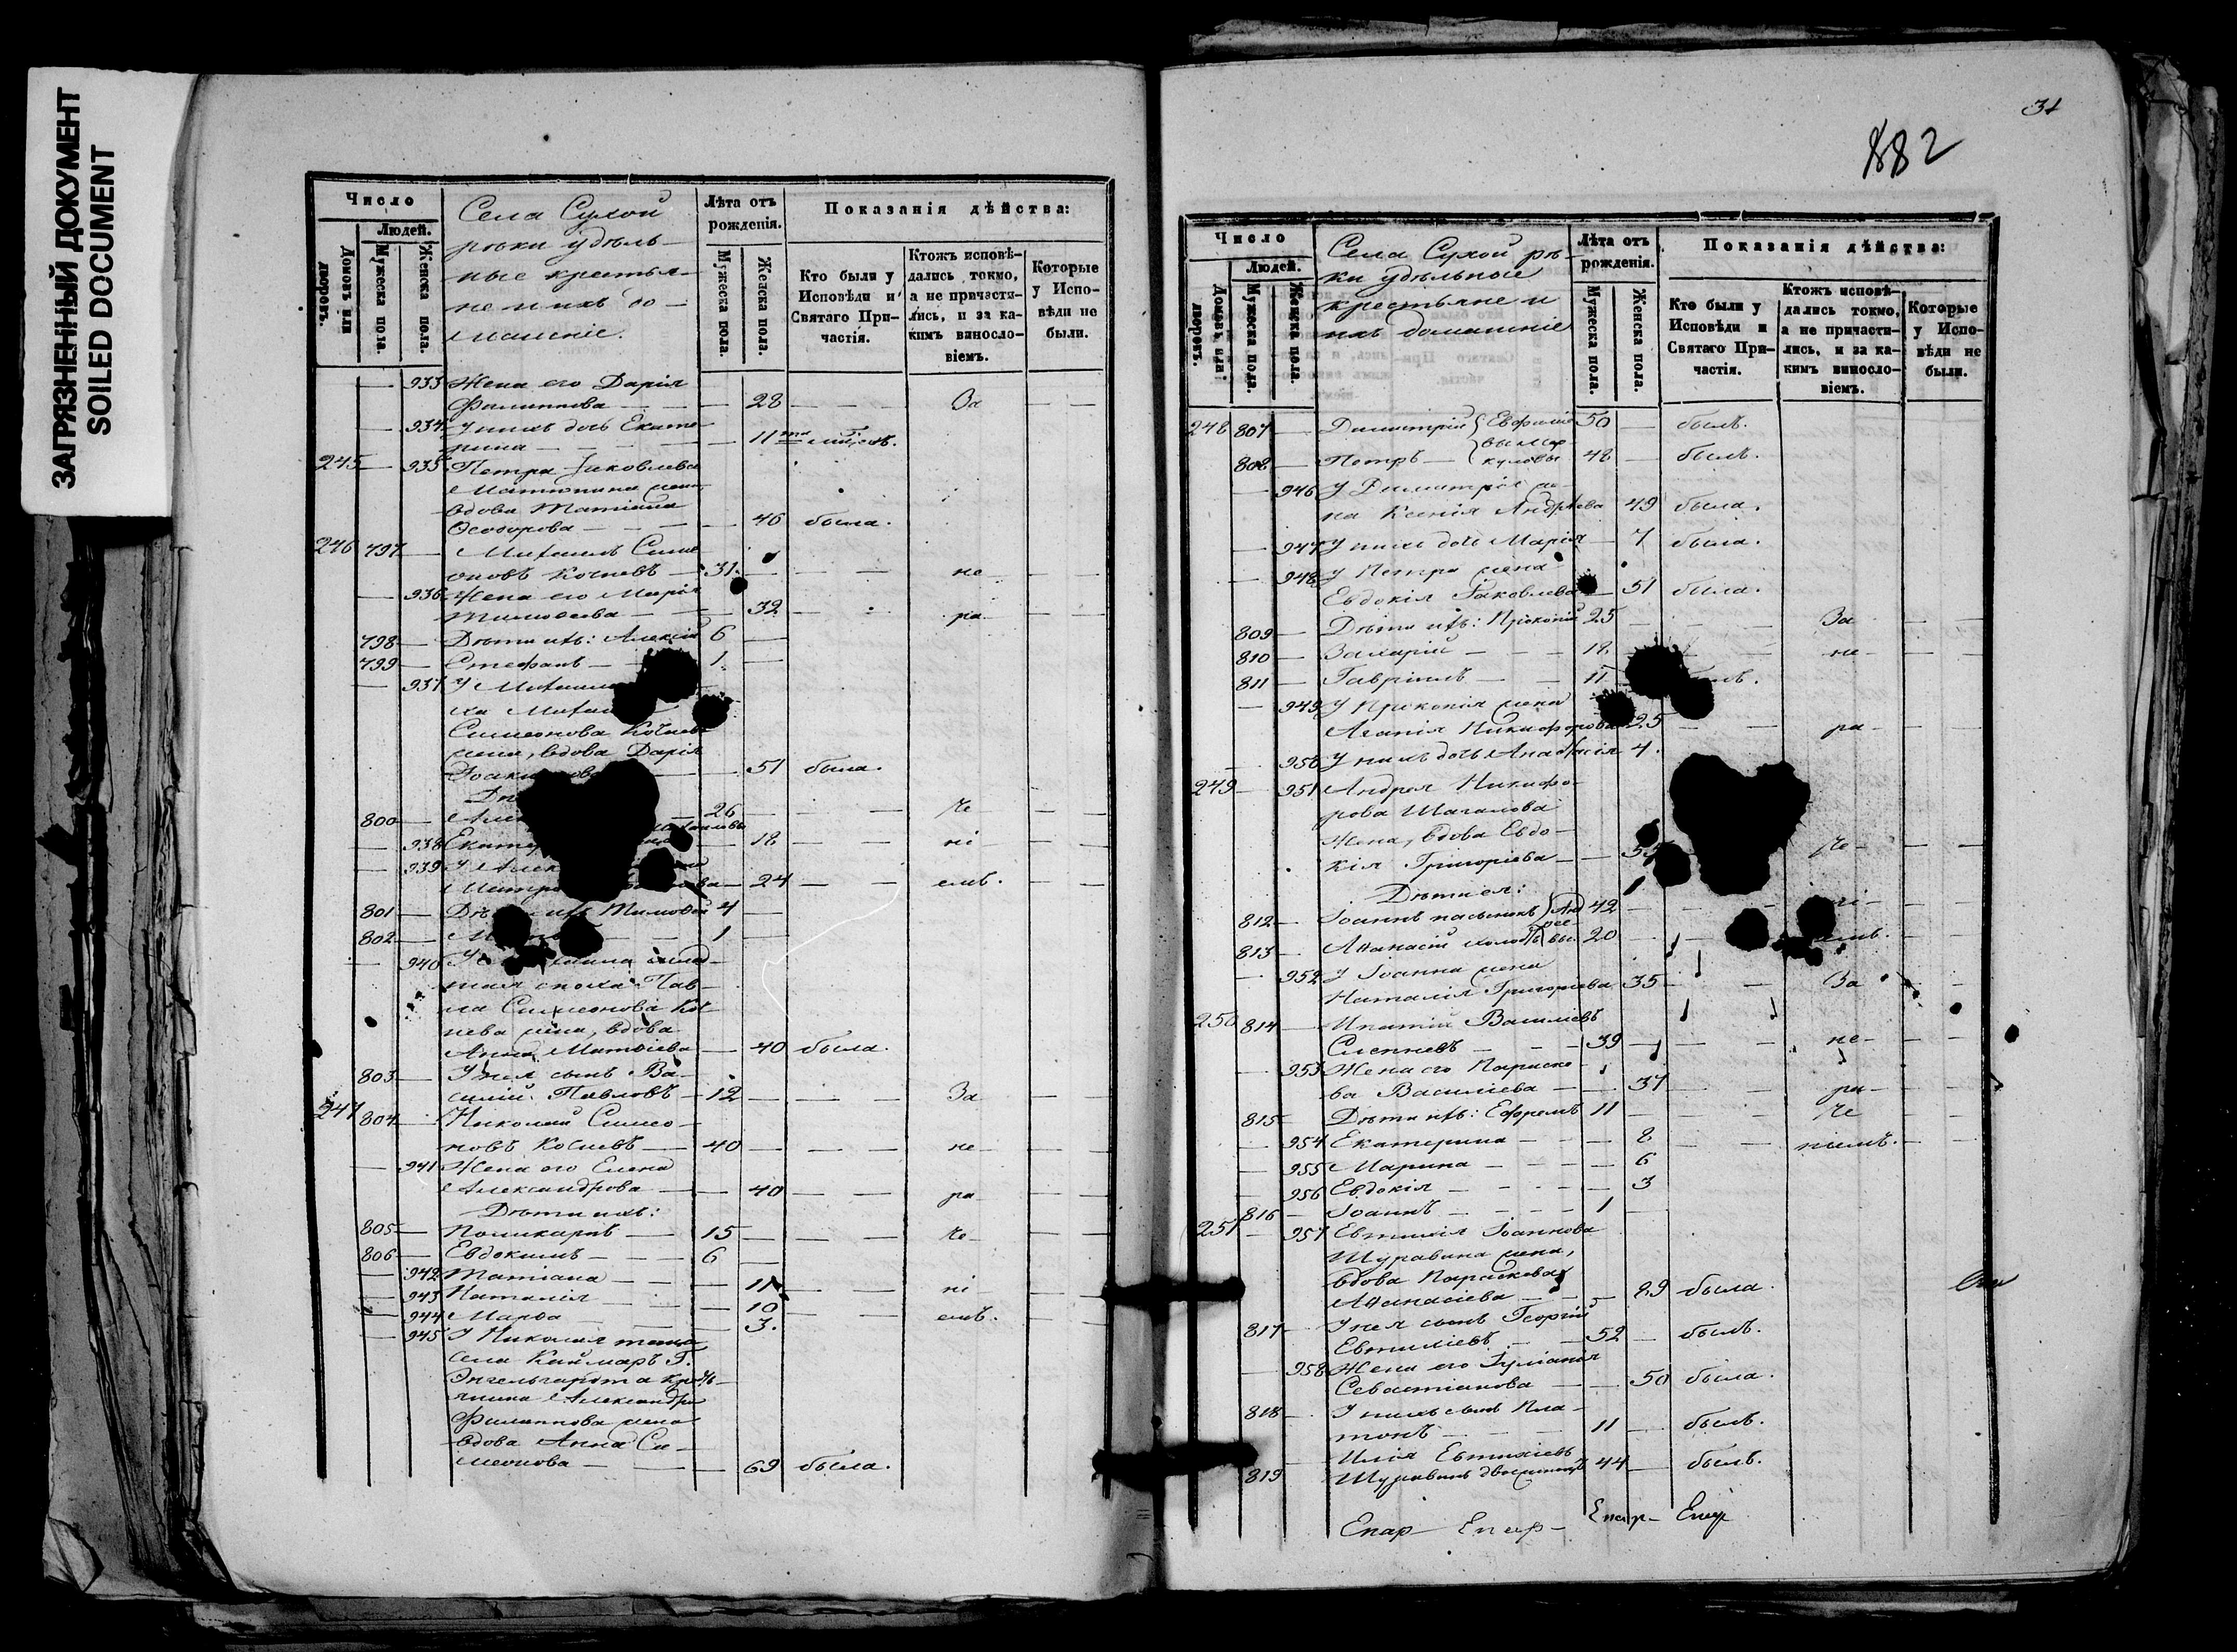 ЗАГРЯЗНЕННЫЙ ДОКУМЕНТ
SOILED DOCUMENT
Число
Людей.
Домовъ или дворовъ.
Мужеска пола.
Женска пола.
Села Сухой
рѣки удѣль-
ные крестья-
не и ихъ до-
машніе.
Лѣта отъ рожденія.
Мужеска пола.
Женска пола.
Показанія дѣйства:
Кто были у Исповѣди и Святаго При-частія.
Ктожъ исповѣ-дались токмо, а не причасти-лись, и за ка-кимъ винослo-віемъ.
Которые у Испо-вѣди не были.
933 Жена его Дарія
Филиппова — 28 — За
934 У нихъ дочь Екате-
рина — 11
245 — 935 Петра Іаковлева
Матюнина жена,
вдова Татіана
Ѳеодорова — 46 была.
246 797 — Михаилъ Симе-
оновъ Кочневъ — 31 — не
936 Жена его Марія
Тимоѳеева — 32 — ра
798 — Дѣти ихъ: Алексій 6
799 — Стефанъ — 1
937 У
ха
Симеонова Кочнева
жена, вдова Дарія
51 была.
800 — 26 — че
938 18 — ні
939 У
24 — емъ.
801 — ихъ Тимоѳей 4
802 — 1
940
Пав-
ла Симеонова Коч-
нева жена, вдова
Анна Матѳіева — 40 была.
803 — У нея сынъ Ва-
силій Павловъ — 12 — За
247 804 — Николай Симео-
новъ Кочневъ — 40 — не
941 Жена его Елена
Александрова — 40 — ра
Дѣти ихъ:
805 — Поликарпъ — 15 — че
806 — Евдокимъ — 6
942 Татіана
943 Наталія — 11 — ні
944 Марѳа — 10 — емъ.
945 У Николая теща 3.
села Каймаръ Г.
Энгельгардта крестья-
нина Александра
Филиппова жена
вдова Анна Си-
меонова — 69 была.
31
882
Число
Людей.
Домовъ или дворовъ.
Мужеска пола.
Женска пола.
Села Сухой рѣ-
ки удѣльные
крестьяне и
ихъ домашніе
Лѣта отъ рожденія.
Мужеска пола.
Женска пола.
Показанія дѣйства:
Кто были у Исповѣди и Святаго При-частія.
Ктожъ исповѣ-дались токмо, а не причасти-лись, и за ка-кимъ винослo-віемъ.
Которые у Испо-вѣди не были.
248 807 — Димитрій 50 — былъ.
808 — Петръ — 48 — былъ.
946 У Димитрія же-
на Ксенія Андреева 49 была.
947 У нихъ дочь Марія — 7 была.
948 У Петра жена
Евдокія Іаковлева — 51 была.
809 — Дѣти ихъ: Прокопій 25 — За
810 — Захарій — 18 — не
811 — Гавріилъ — 11
949 У Прокопія жена
Агапія Никифорова 25 — ра
950 У нихъ дочь Анастасія 4.
249 — 951 Андрея Никифо-
рова Шагалова
жена, вдова Евдо-
кія Григоріева — че
Дѣти ея:
812 — Іоаннъ пасынокъ 42
813 — Аѳанасій 20
952 У Іоанна жена
Наталія Григоріева 35 — За
250 814 — Ипатій Василіевъ
39 — не
953 Жена его Параске-
ва Василіева — 37 — ра
815 — Дѣти ихъ: Ефремъ 11 — че
954 Екатерина — 8 — ніемъ.
955 Марина — 6
956 Евдокія — 3
816 — Іоаннъ — 1
251 — 957 Евтихія Іоаннова
Шуравина жена,
вдова Параскева
Аѳанасіева — 89 была.
817 — У нея сынъ Георгій
Евтихіевъ — 52 — былъ.
958 Жена его Іуліанія
Севастіанова — 50 была.
818 — У нихъ сынъ Пла-
тонъ — 11 — былъ.
Илія Евтихіевъ
819 Шуравинъ 44 — былъ.
Епар- Епар- Епар- Епар